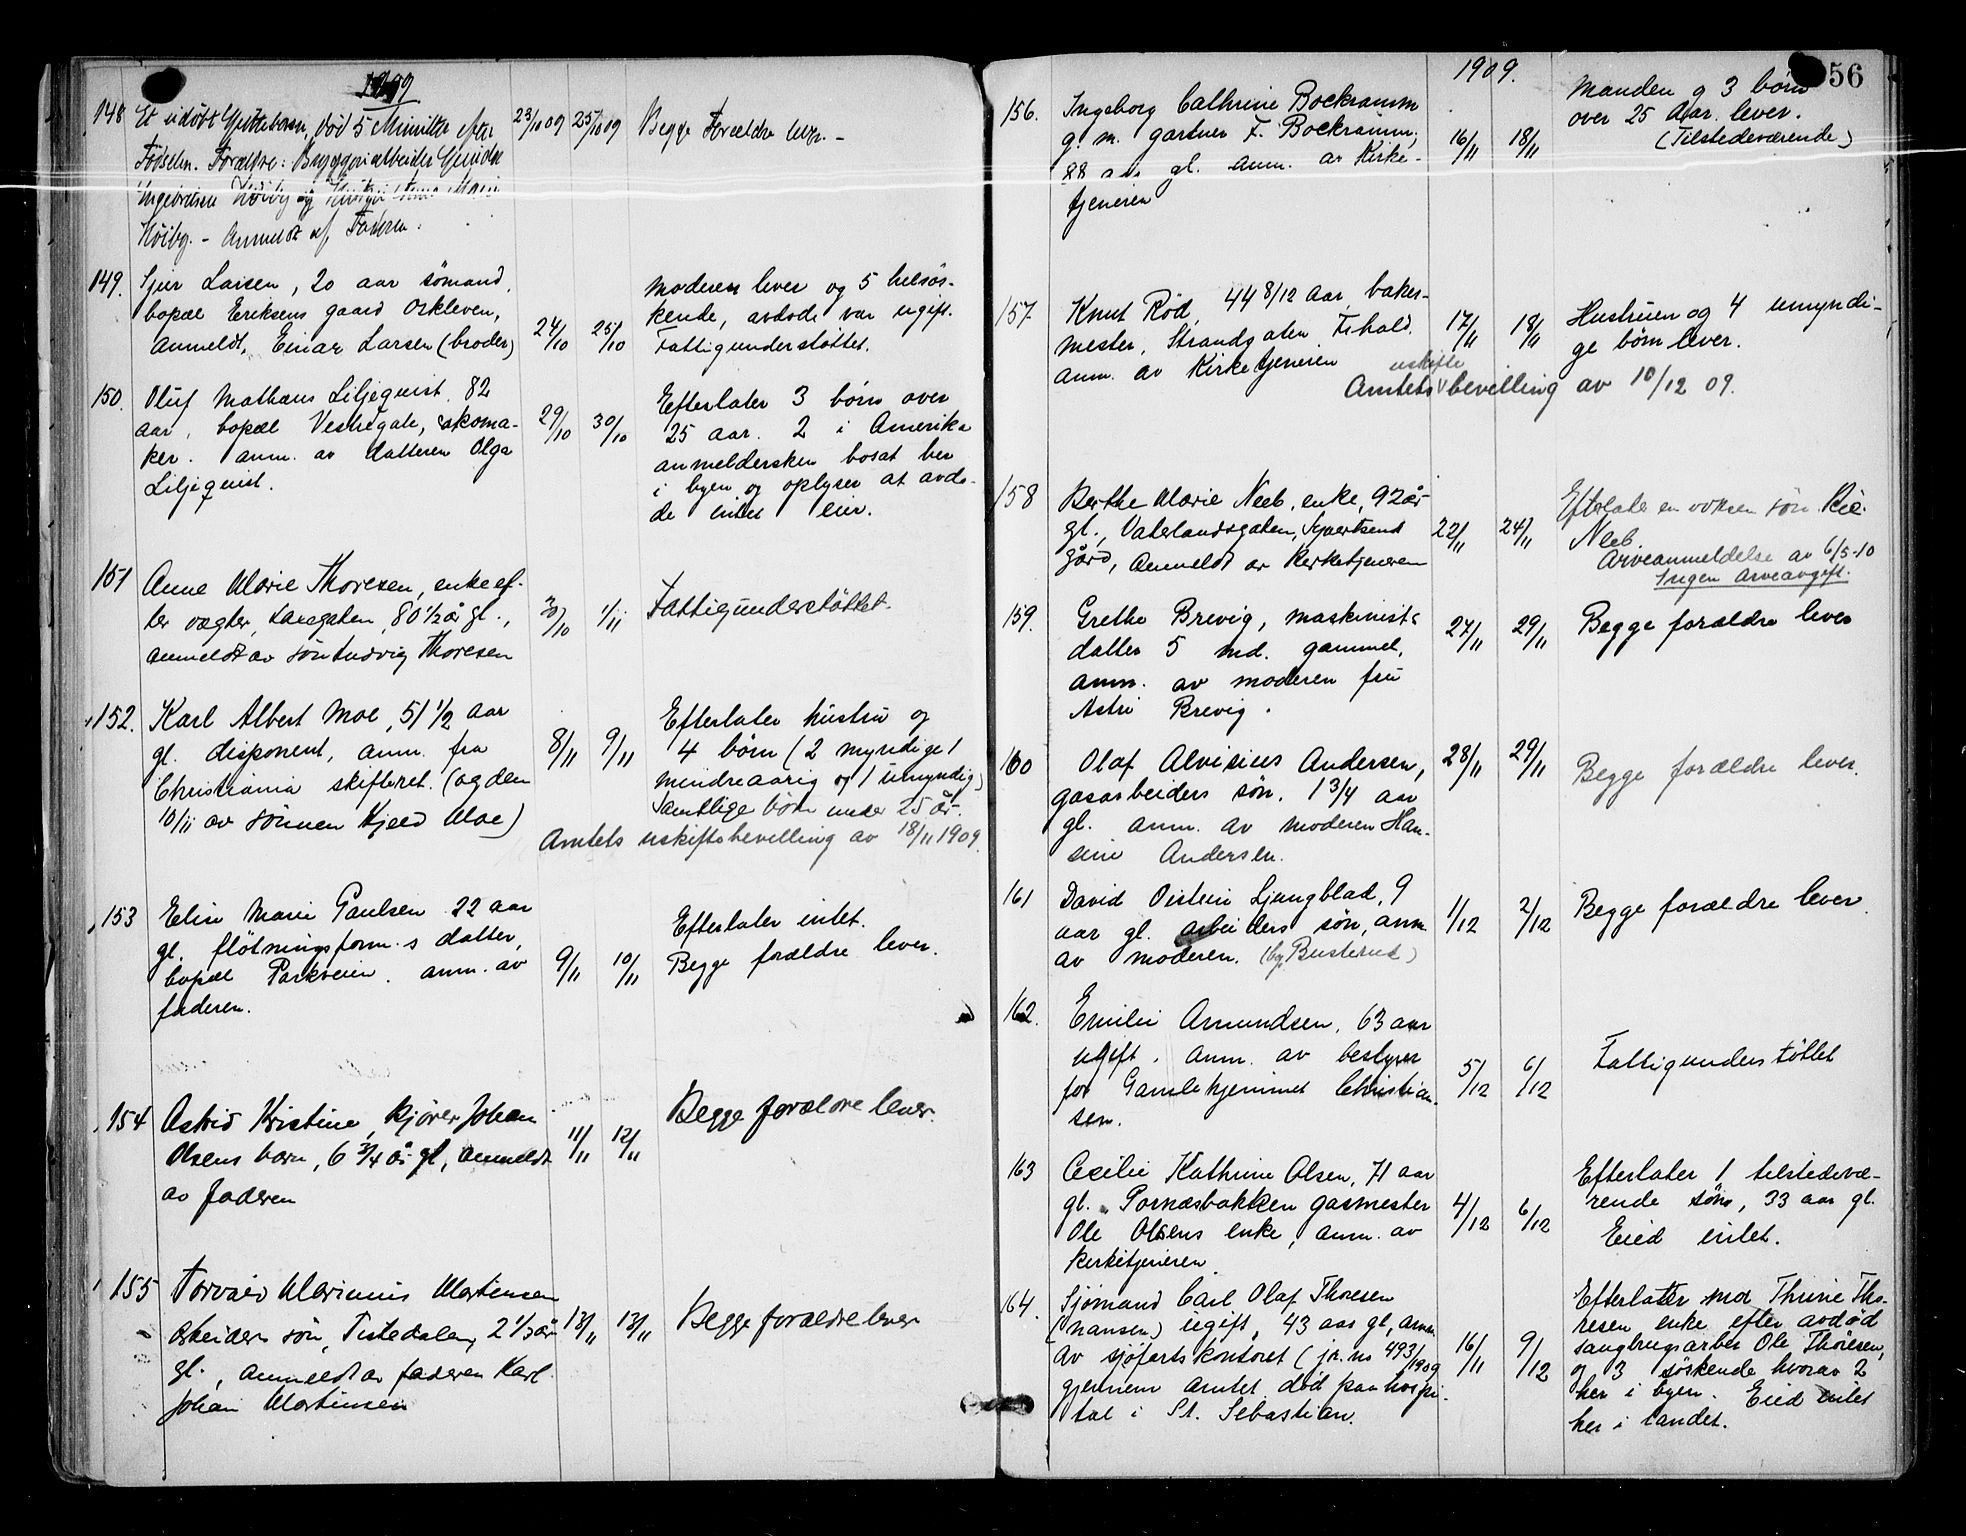 1909
148 Et udöbt Gjuttebarn, död 5 Minutter efter 23/10 09 25/10 09 Begge Forældre lever. -
Fødselen. Forældre: Bryggeriarbeider
Ingebretsen Höiby og Hustru Anna Marie
Höiby. - Anmeldt af Faderen.
149. Larsen, 20 aar sömand,
bopæl Eriksens gaard Oskleven,
Anmeldt, Einar Larsen (broder) 24/10 25/10
Moderen lever og 5 helsøs-
kende, avdøde var ugift.
Fattigunderstøttet.
150. Oluf Mathæus Liljequist. 82
aar, bopæl Vestregate, skoma-
ker. anm. av datteren Olga
Liljequist. 29/10 30/10
Efterlater 3 børn over
25 aar. 2 i Amerika
anmeldersken bosat her
i byen og oplyser at avdø-
de intet eier.
151 Anne Marie Thoresen, enke ef-
ter vægter, Langgaten, 80 1/2 år gl.,
anmeldt av søn Ludvig Thoresen 30/10 1/11
Fattigunderstöttet.
152. Karl Albert Moe, 51 1/2 aar
gl. disponent, anm. fra
Christiania skifteret. (og den
10/11 av sönnen Kjeld Moe) 8/11 9/11
Efterlater hustru og
4 børn (2 myndige 1
mindreaarig og 1 umyndig)
Samtlige børn under 25 år.
Amtets uskiftebevilling av 18/11 1909.
153 Elise Marie Paulsen 22 aar
gl. flötningsform.s datter,
bopæl Parkveien. anm. av
faderen. 9/11 10/11
Efterlater intet.
Begge forældre lever.
154 Astrid Kristine, kjører Johan
Olsens barn, 6 3/4 år gl, anmeldt
av faderen 11/11 12/11
Begge forældre lever.
155 Torvald Marinius Martinsen
arbeiders søn, Tistedalen, 2 1/3 år
gl., anmeldt av faderen Karl
Johan Martinsen 13/11 13/11
Begge forældre lever
1909. 56
156. Ingeborg Cathrine Bockramm
g. m. gartner F. Bockramm,
88 aar gl. anm. av Kirke-
tjeneren 16/11 18/11
Manden og 3 børn
over 25 Aar. lever.
(Tilstedeværende)
157 Knut Rød, 44 8/12 aar, baker-
mester, Strandgaten Frhald.
anm. av Kirketjeneren 17/11 18/11
Hustruen og 4 umyndi-
ge børn lever.
uskifte
Amtets bevilling av 10/12 09.
158 Berthe Marie Neeb, enke, 92 år
gl., Vaterlandsgaten, Syvertsens
gård, Anmeldt av Kirketjeneren 22/11 24/11
Efterlater en voksen søn
Neeb.
Arveanmeldelse av 6/5-10
Ingen Arveavgift.
159. Grethe Brevig, maskinist.
datter 5 md. gammel,
anm. av moderen fru
Astri Brevig. 27/11 29/11
Begge forældre lever
160 Olaf Alvisius Andersen,
gasarbeiders søn, 1 3/4 aar
gl. anm. av moderen Han-
sine Andersen. 28/11 29/11
Begge forældre lever.
161 David Oistein Ljungblad, 9
aar gl. arbeiders søn, anm
av moderen. (bg. Busterud) 1/12 2/12
Begge forældre lever.
162. Emilie Amundsen, 63 aar
ugift. anm. av bestyrer
for Gamlehjemmet Christian-
sen. 5/12 6/12
Fattigunderstöttet
163 Cecilie Kathrine Olsen, 71 aar
gl. Pornæsbakken gasmester
Ole Olsens enke, anm. av
Kirketjeneren 4/12 6/12
Efterlater 1 tilstedevæ-
rende søn, 33 aar gl.
Eied intet.
164. Sjömand Carl Olaf Thoresen
(Hansen) ugift, 43 aar gl, anm.
av sjöfartskontoret (jr. no 493/1909
gjennem amtet. død paa hospi-
tal i St. Sebastian. 16/11 9/12
Efterlater md Thrine Tho-
resen enke efter avdød
saugbrugsarber Ole Thöresen,
og 3 söskende hvorav 2
her i byen. Eied intet
her i landet.